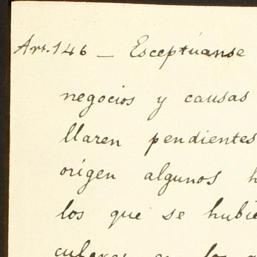 Art. 146 — Esceptúanse
negocios y causas
llaren pendientes
origen algunos h
los que se hubie